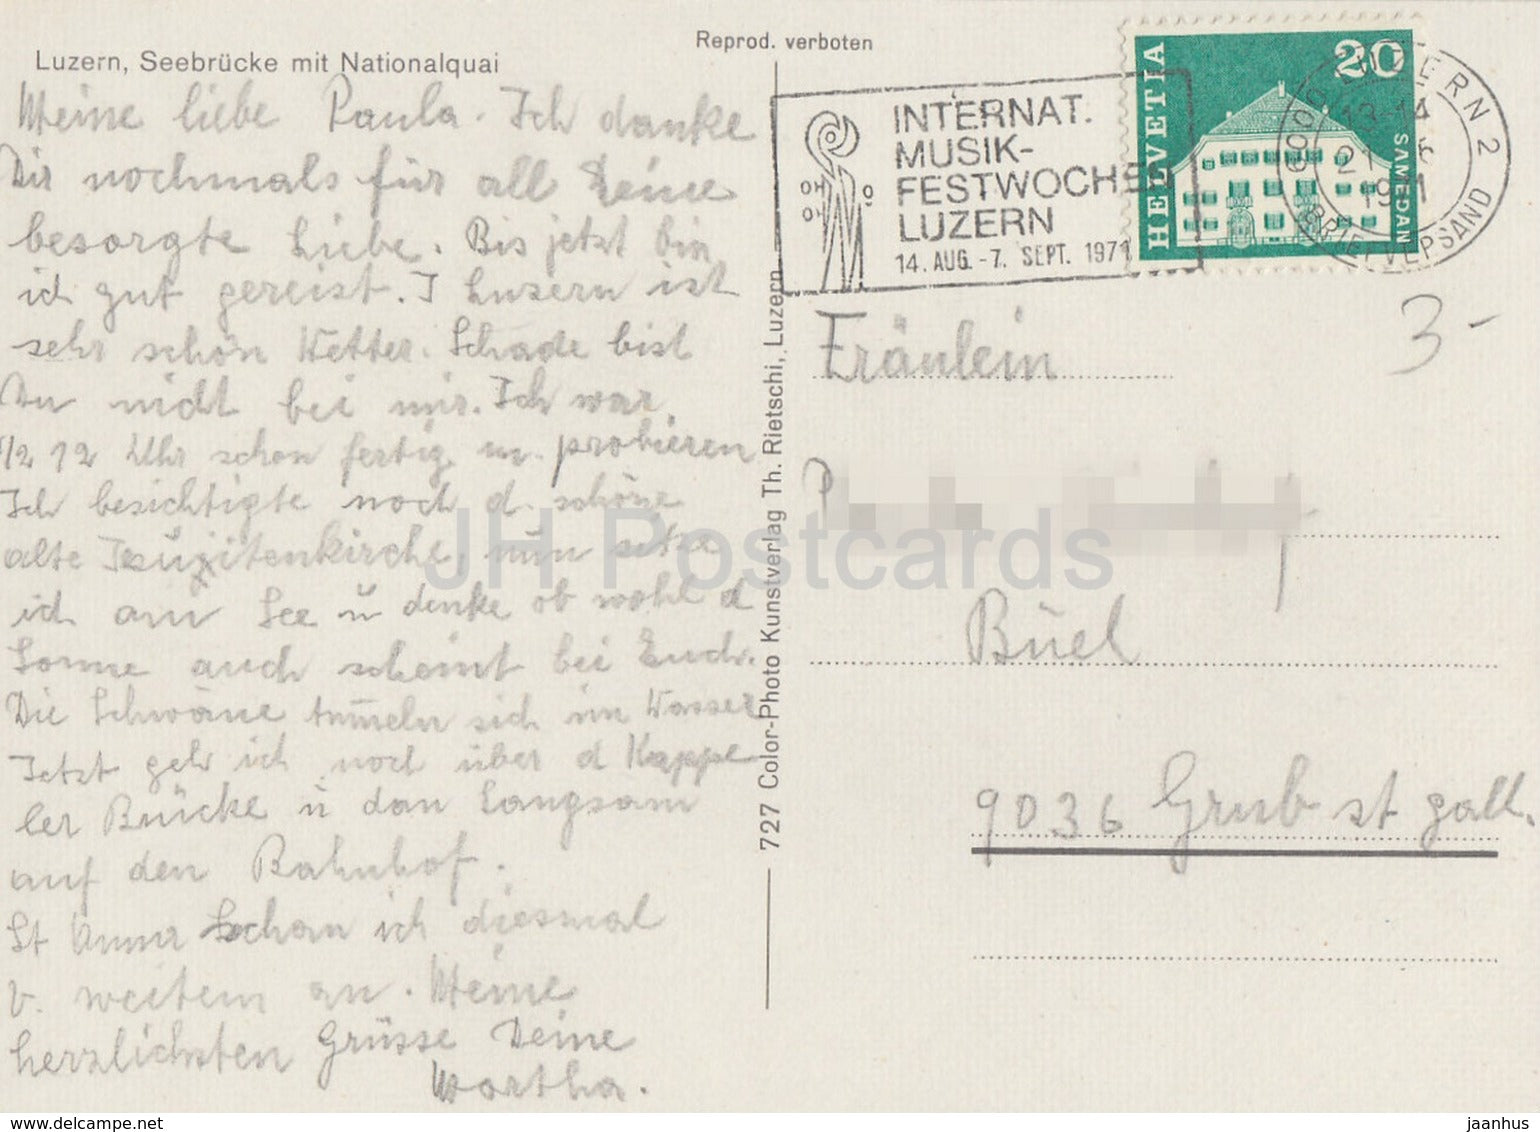 Reprod. verboten
Luzern, Seebrücke mit Nationalquai
Meine liebe Paula. Ich danke
Dir nochmals für all Deine
besorgte Liebe. Bis jetzt bin
ich gut gereist. I Luzern ist
sehr schön Wetter. Schade bist
Du nicht bei mir. Ich war
1/2 12 Uhr schon fertig m. probieren
Ich besichtigte noch d. schöne
alte Jesuitenkirche, nun sitze
ich am See u denke ob wohl d
Sonne auch scheint bei Euch.
Die Schwäne tum̅eln sich im Wasser
Jetzt geh ich noch über d Kappe
ler Brücke u dan langsam
auf den Bahnhof.
St Anna schau ich diesmal
v. weitem an. Meine
herzlichsten Grüsse Deine
Martha.
727 Color-Photo Kunstverlag Th. Rietschi, Luzern
INTERNAT.
MUSIK-
FESTWOCHE
LUZERN
14. AUG. - 7. SEPT. 1971
HELVETIA
20
SAMEDAN
6000 LUZERN 2
BRIEFVERSAND
3-
Fräulein
P
Büel
9036 Grub st gall.
JH Postcards
www.delcampe.net
jaanhus